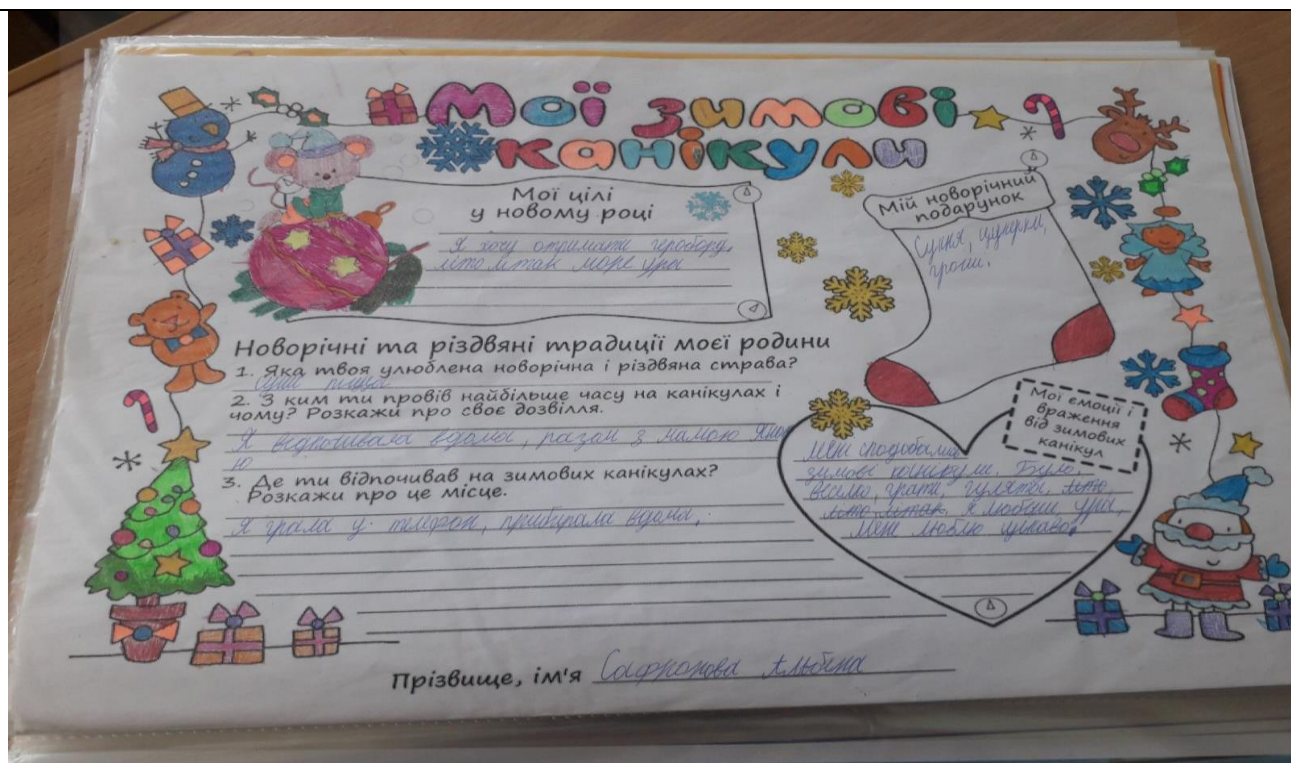 Мої зимові
канікули
Мої цілі
у новому році
Я хочу отримати гіроборд,
літо літак море ура
Мій новорічний
подарунок
Сукня, цукерки,
гроші.
Новорічні та різдвяні традиції моєї родини
1. Яка твоя улюблена новорічна і різдвяна страва?
Суші піца
2. З ким ти провів найбільше часу на канікулах і
чому? Розкажи про своє дозвілля.
Я відпочивала вдома, разом з мамою
ю
3. Де ти відпочивав на зимових канікулах?
Розкажи про це місце.
Я грала у телефон, прибирала вдома,
Мої емоції і
враження
від зимових
канікул
Мені сподобались
зимові канікули. Було
весело, грати, гуляти, літо
літо літак, я люблю, ура,
Мені люблю цікаво.
Прізвище, ім'я Сафронова Альбіна